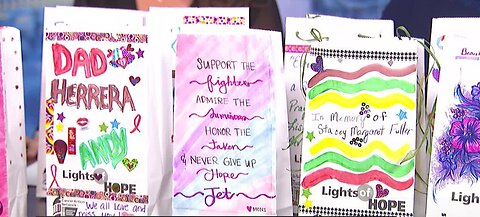 DAD
HERRERA
ANDY
Lights of HOPE
We all love and
miss you
SUPPORT THE
fighters
ADMIRE THE
Survivors
HONOR THE
Taken
& NEVER GIVE UP
Hope
Jet
MOMS
In Memory of
Stacey Margaret Fuller
Lights of HOPE